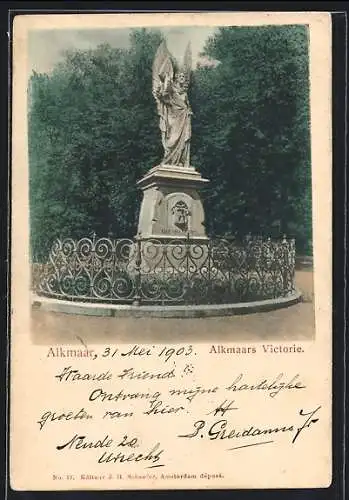 Alkmaar, 31 Mei 1903. Alkmaars Victorie.
Waarde Vriend!
Ontvang mijne hartelijke
groeten van hier.
P. Greidanus Jr
Utrecht
No. 17. Edition J. H. Schaefer, Amsterdam déposé.